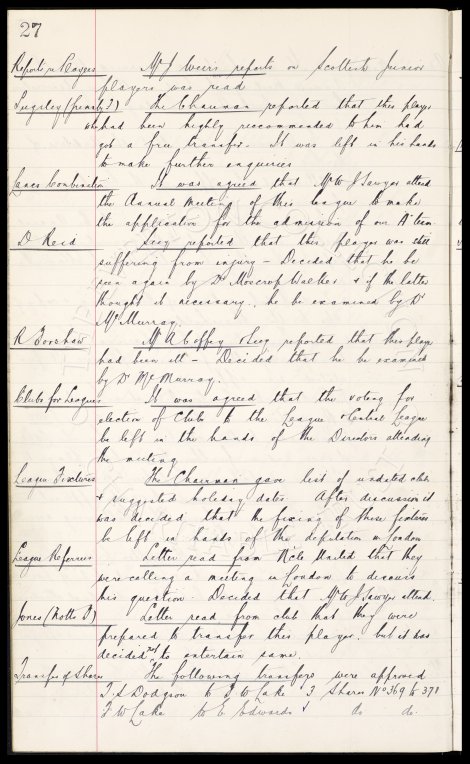 27
Reports re Players Mr J Weirs reports on Scottish Junior
players was read
Lugsley (Grimsby T) The Chairman reported that this player
who had been highly recommended to him had
got a free transfer. It was left in his hands
to make further enquiries
Lancs Combination It was agreed that Mr W J Sawyer attend
the Annual Meeting of this league to make
the application for the admission of our A team
D Reid Secy reported that this player was still
suffering from injury - Decided that he be
seen again by Dr Moscrop Walker & if the latter
thought it necessary, he be examined by Dr
McMurray.
R Forshaw Mr A Coffey & Secy reported that this player
had been ill - Decided that he be examined
by Dr McMurray.
Clubs for Leagues It was agreed that the voting for
election of clubs to the League & Central League
be left in the hands of the Directors attending
the meeting
League Fixtures The Chairman gave list of undated clubs
& suggested holiday dates After discussion it
was decided that the fixing of these fixtures
be left in hands of the deputation in London
League Referees Letter read from Ncle United that they
were calling a meeting in London to discuss
this question. Decided that Mr W J Sawyer attend.
Jones (Notts F) Letter read from club that they were
prepared to transfer this player. but it was
decided not to entertain same.
Transfer of Shares The following transfers were approved
T. S Dodgson to F W Lake 3 Shares No 369 to 371
F W Lake to E Edwards & do do.